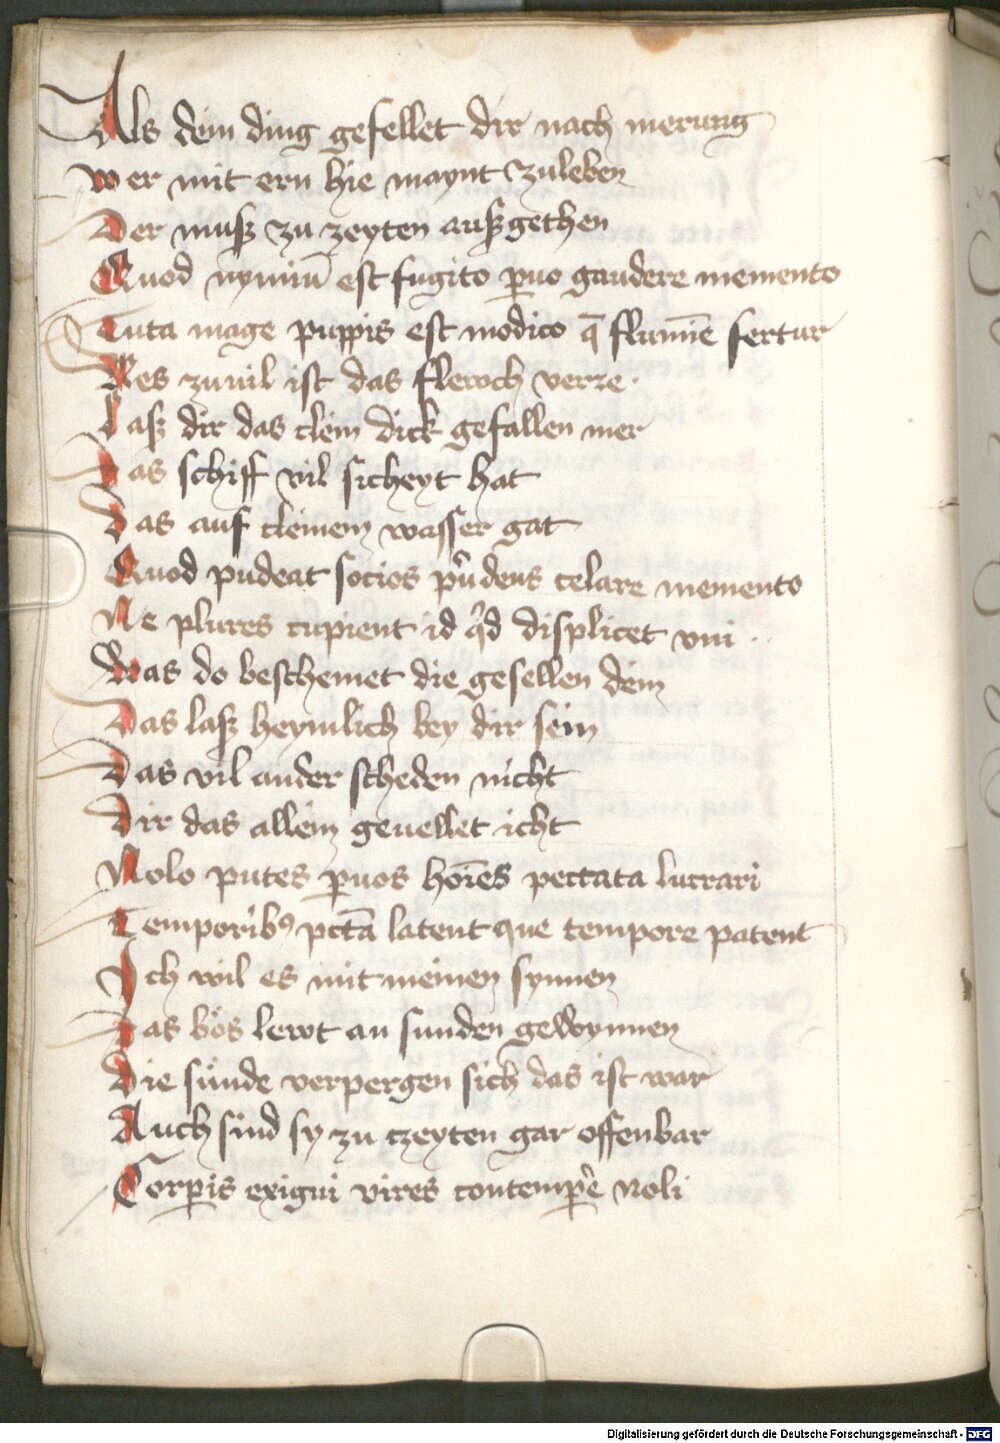 Als dein ding gefellet dir nach merung
Wer mit ern hie maynt zuleben
Der musz zu zeyten auszgethen
Quod nymiū est fugito puo gaudere memento
Tuta mage puppis est modico q̄ flumīe fertur
Wes zuuil ist das flewch verre.
Lasz dir das clein dick gefallen mer
Das schiff vil sicheyt hat
Das auf cleinem wasser gat
Quod pudeat socios prudens celare memento
Ne plures cupient id qd displicet vni ..
Was do beschemet die gesellen dein
Das lasz heymlich bey dir sein
Das vil ander scheden nicht
Dir das allein geuellet icht
Nolo putes puos hoīes peccata lucrari
Temporibꝰ pctā latent que tempore patent
Ich wil es mit meinen synnen
Das bös lewt an sunden gewynnen
Die sünde verpergen sich das ist war
Auch sind sy zu czeyten gar offenbar
Corpis exigui vires contempe noli
Digitalisierung gefördert durch die Deutsche Forschungsgemeinschaft - DFG